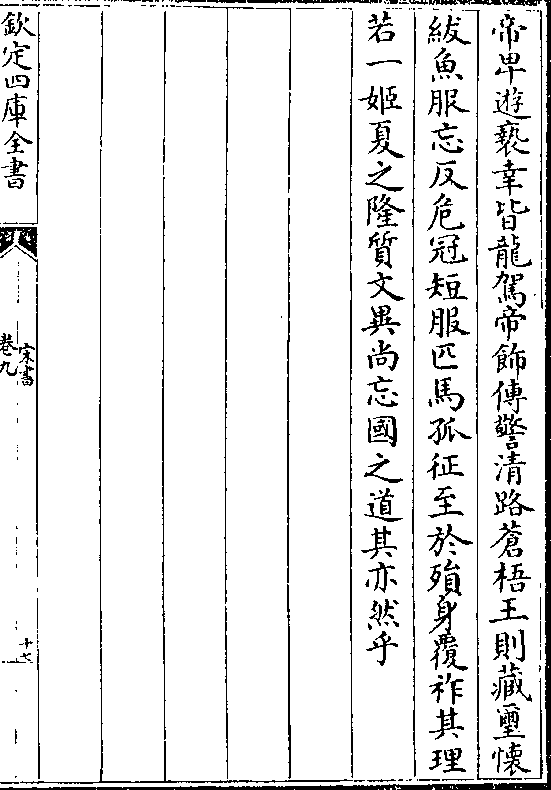 帝卑遊褻幸皆龍駕帝飾傳警清路蒼梧王則藏璽懷
紱魚服忘反危冠短服匹馬孤征至於殞身覆祚其理
若一姬夏之隆質文異尚忘國之道其亦然乎
欽定四庫全書
宋書
卷九
十七